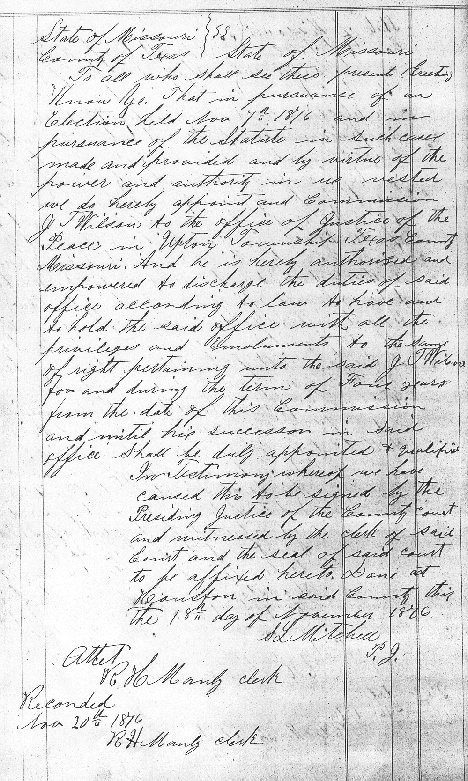 State of Missouri } SS
County of Texas State of Missouri
To all who shall see these present Greeting
Know Ye. That in pursuance of an
Election held Nov 7th 1876 and in
pursuance of the Statute in such cases
made and provided and by virtue of the
power and authority in us vested
we do hereby appoint and Commission
J T Wilson to the office of Justice of the
Peace in Upton Township Texas County
Missouri. And he is hereby authorised and
empowered to discharge the duties of said
office according to law to have and
to hold the said office with all the
privileges and Emoluments to the same
of right pertaining unto the said J T Wilson
for and during the term of Four years
from the date of this Commission
and until his successor in said
office shall be duly appointed & qualified
In Testimony whereof we have
caused this to be signed by the
Presiding Justice of the County Court
and witnessed by the clerk of said
Court and the seal of said court
to be affixed hereto. Done at
Houston in said County this
the 18th day of November 1876
S L Mitchell
P. J.
Attest
R H Mantz clerk
Recorded
Nov 20th 1876
R H Mantz clerk